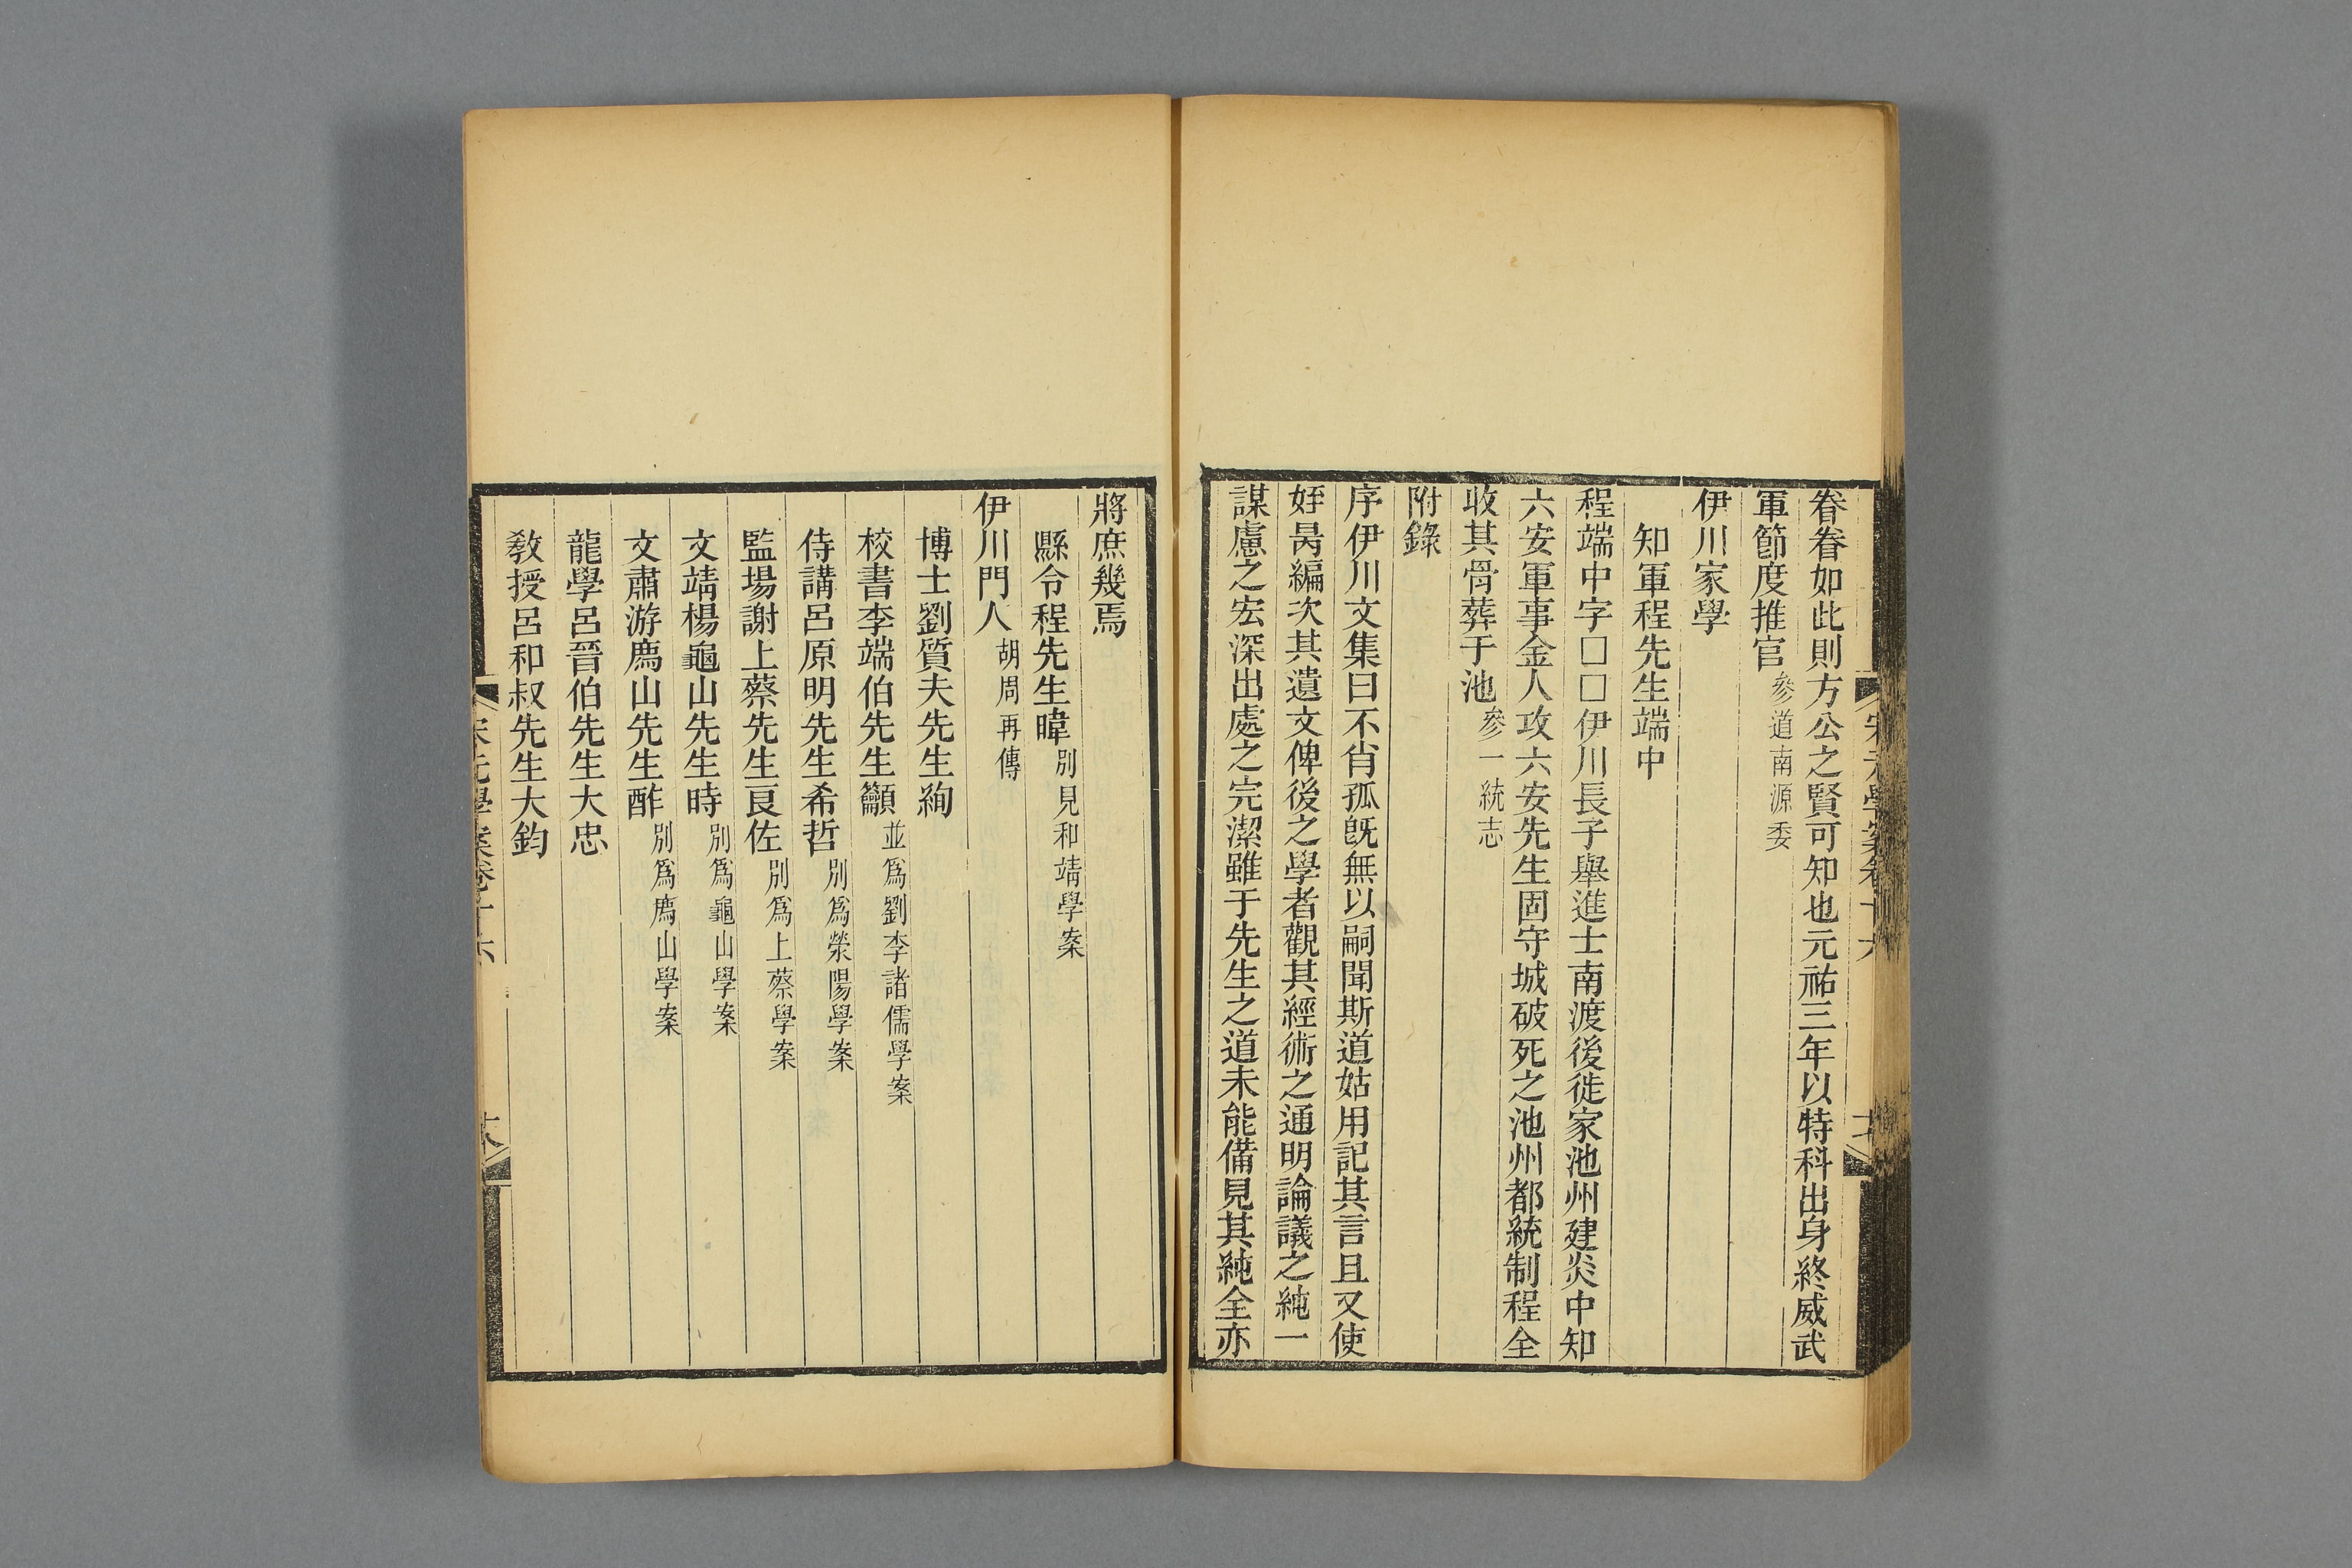 眷眷如此則方公之賢可知也元祐三年以特科出身終威武
軍節度推官參道南源委
伊川家學
知軍程先生端中
程端中字□□伊川長子舉進士南渡後徙家池州建炎中知
六安軍事金人攻六安先生固守城破死之池州都統制程全
收其骨葬于池參一統志
附錄
序伊川文集曰不肖孤旣無以嗣聞斯道姑用記其言且又使
姪昺編次其遺文俾後之學者觀其經術之通明論議之純一
謀慮之宏深出處之完潔雖于先生之道未能備見其純全亦
將庶幾焉
縣令程先生暐別見和靖學案
伊川門人胡周再傳
博士劉質夫先生絢
校書李端伯先生籲並爲劉李諸儒學案
侍講呂原明先生希哲別爲滎陽學案
監場謝上蔡先生良佐別爲上蔡學案
文靖楊龜山先生時別爲龜山學案
文肅游廌山先生酢別爲廌山學案
龍學呂晉伯先生大忠
敎授呂和叔先生大鈞
宋元學案卷十六
十八